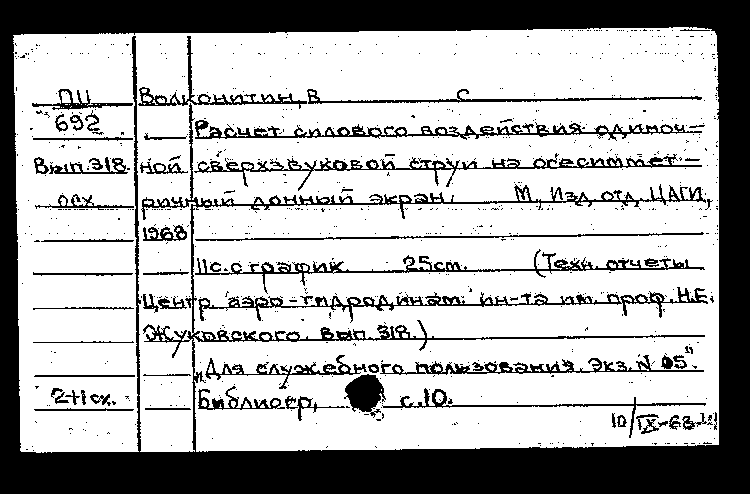 П11 Волконитин, В С
692 Расчет силового воздействия одиноч-
Вып.318 ной сверхзвуковой струи на осесиммет-
осх. ричный донный экран. М., Изд. отд. ЦАГИ,
1968
11с. с график. 25см. (Техн. отчеты
Центр. аэро-гидродинам. ин-та им. проф. Н.Е.
Жуковского. Вып. 318.)
„Для служебного пользования. Экз. N 05".
2+1сх. Библиогр., с.10.
10/IX-68